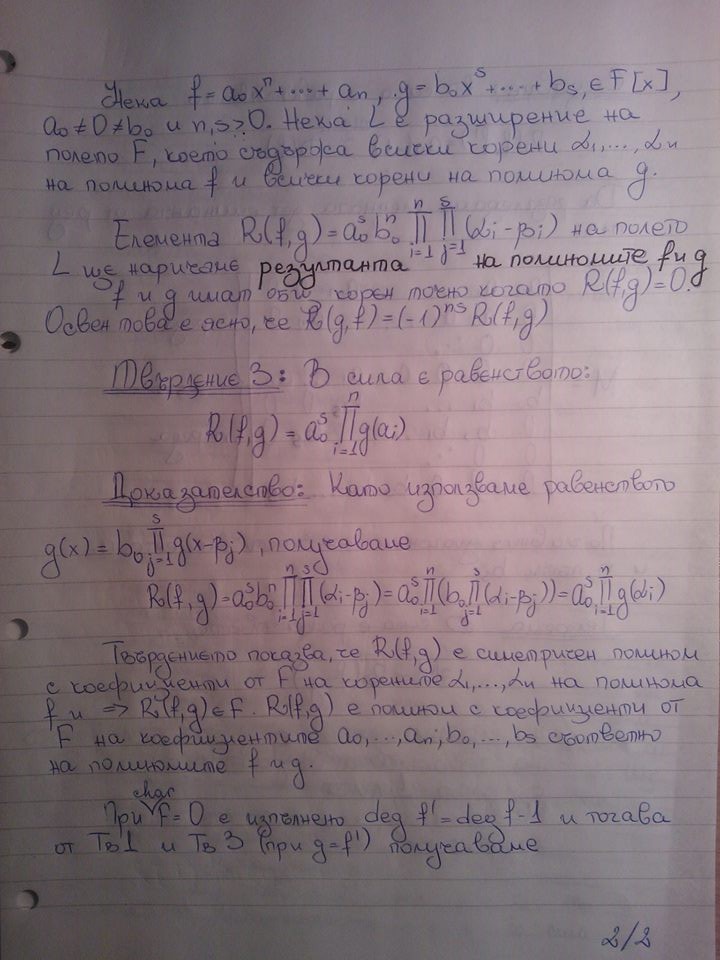 Нека f = a₀xⁿ + ... + aₙ, g = b₀xˢ + ... + bₛ, ∈ F[x],
a₀ ≠ 0 ≠ b₀ и n, s > 0. Нека L е разширение на
полето F, което съдържа всички корени α₁, ..., αₙ
на полинома f и всички корени на полинома g.
Елемента R(f,g) = a₀ˢ b₀ⁿ ∏ᵢ₌₁ⁿ ∏ⱼ₌₁ˢ (αᵢ - βⱼ) на полето
L ще наричаме резултанта на полиномите f и g
f и g имат общ корен точно когато R(f,g) = 0.
Освен това е ясно, че R(g,f) = (-1)ⁿˢ R(f,g)
Твърдение 3: В сила е равенството:
R(f,g) = a₀ˢ ∏ᵢ₌₁ⁿ g(aᵢ)
Доказателство: Като използваме равенството
g(x) = b₀ ∏ⱼ₌₁ˢ g(x-βⱼ), получаваме
R(f,g) = a₀ˢ b₀ⁿ ∏ᵢ₌₁ⁿ ∏ⱼ₌₁ˢ (αᵢ - βⱼ) = a₀ˢ ∏ᵢ₌₁ⁿ (b₀ ∏ⱼ₌₁ˢ (αᵢ - βⱼ)) = a₀ˢ ∏ᵢ₌₁ⁿ g(αᵢ)
Твърдението показва, че R(f,g) е симетричен полином
с коефициенти от F на корените α₁, ..., αₙ на полинома
f и => R(f,g) ∈ F. R(f,g) е полином с коефициенти от
F на коефициентите a₀, ..., aₙ; b₀, ..., bₛ съответно
на полиномите f и g.
При char F = 0 е изпълнено deg f' = deg f - 1 и тогава
от Тв 1 и Тв 3 (при g = f') получаваме
2/2